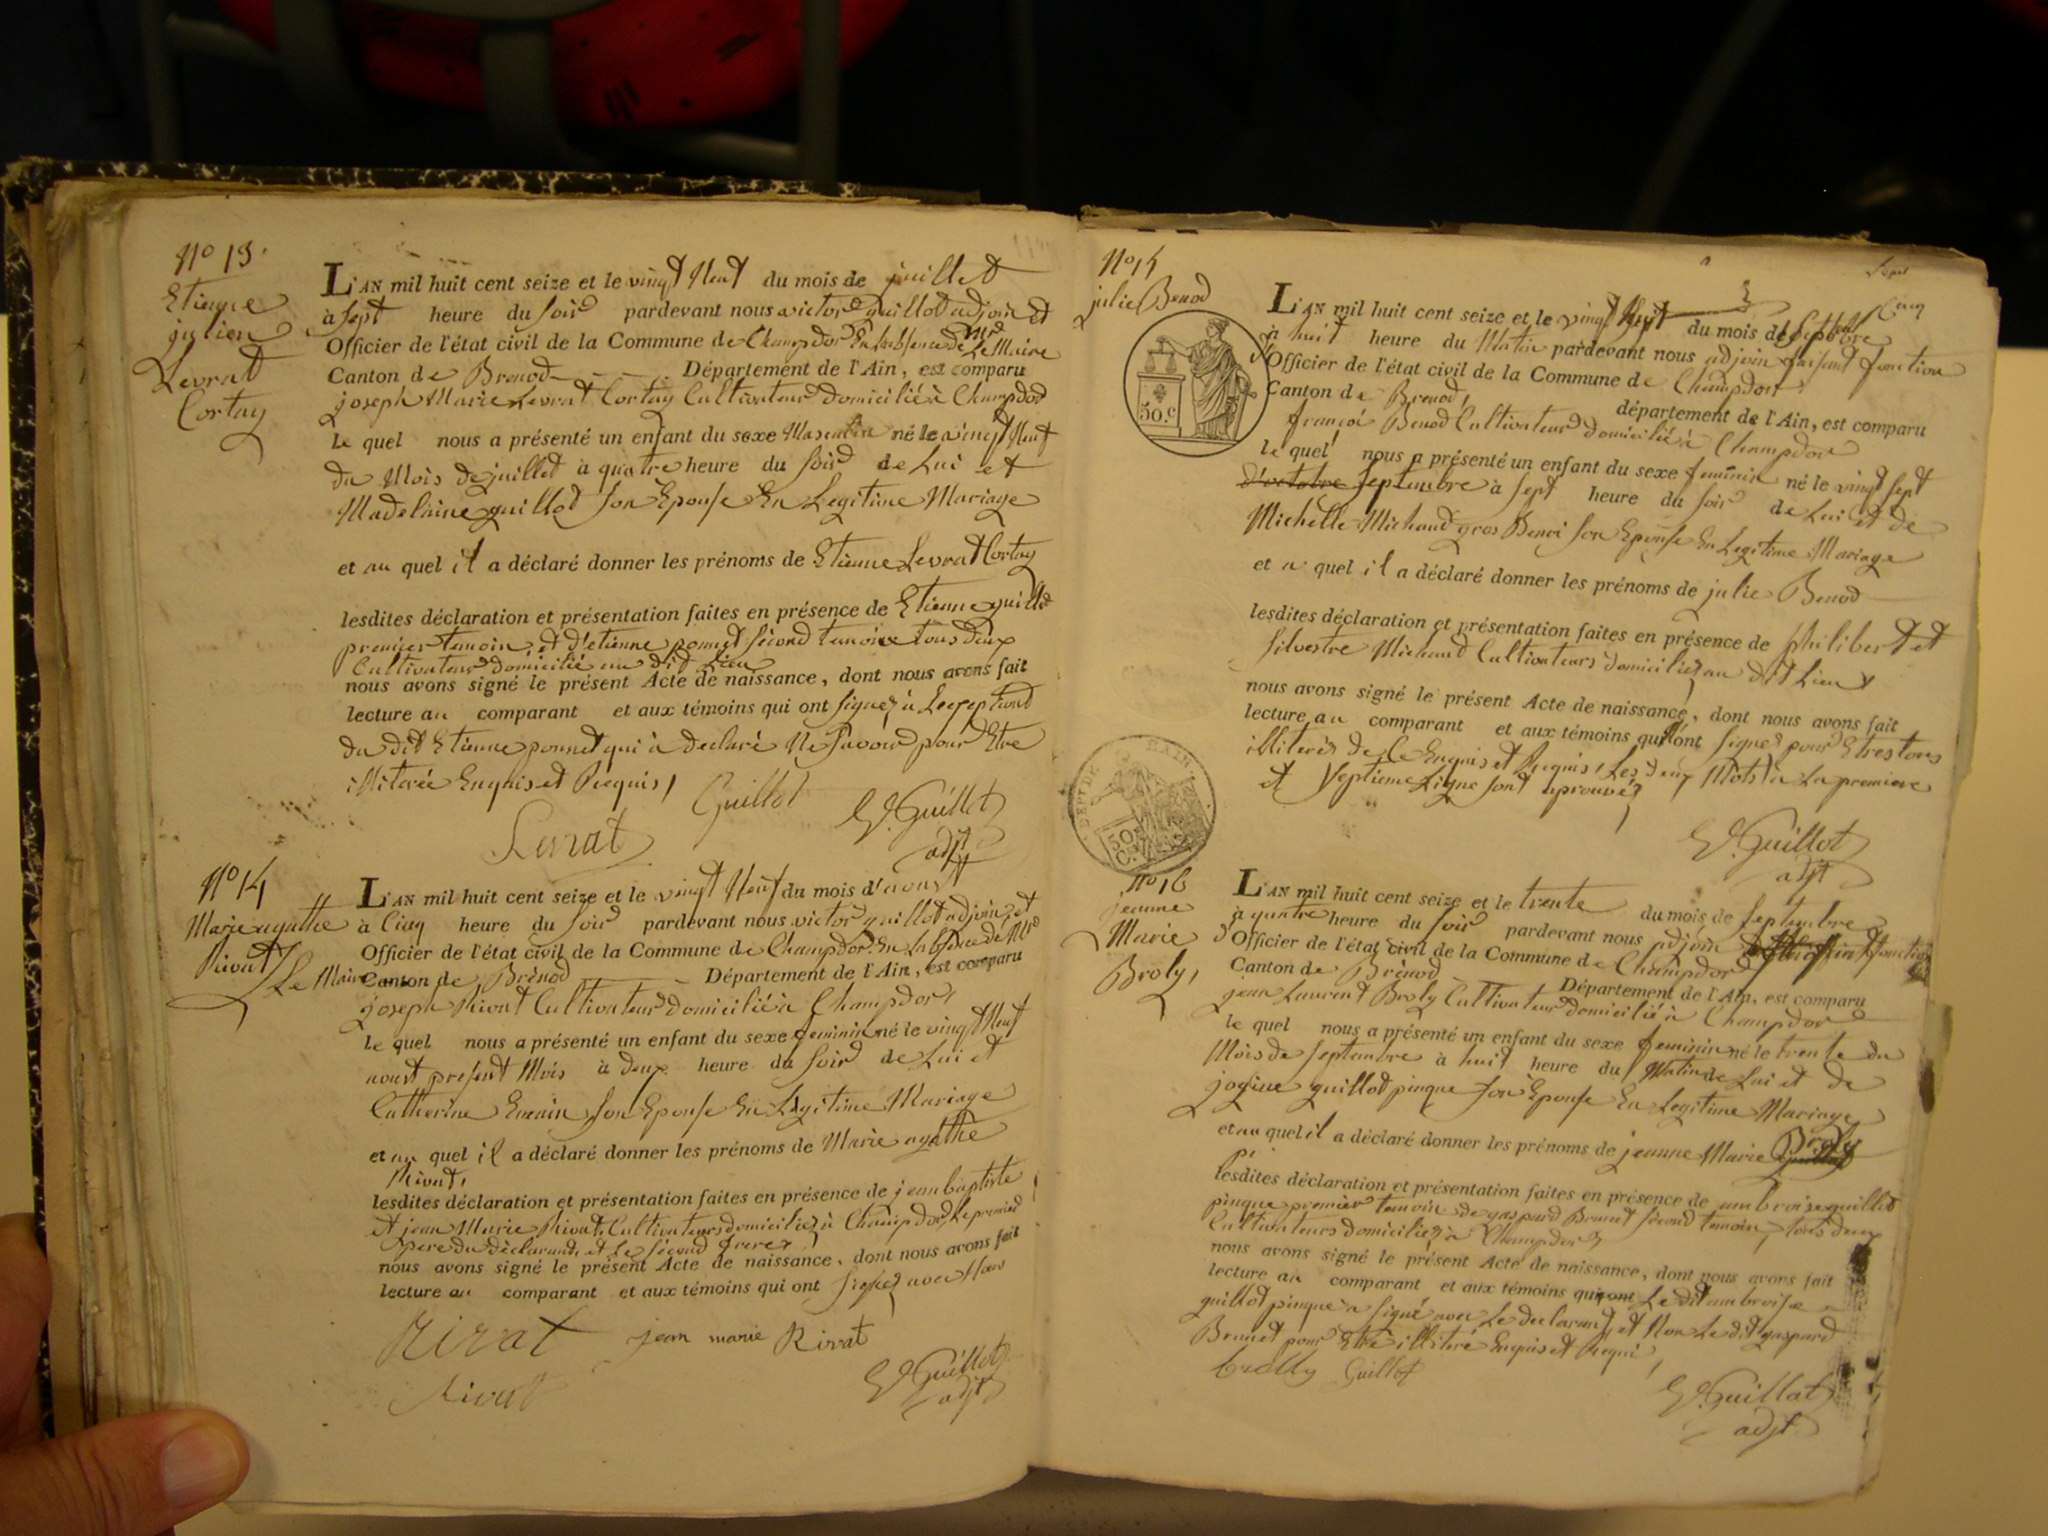 No 13.
Etienne
julien
Levrat
Cortay
L'AN mil huit cent seize et le vingt Neuf du mois de juillet
à Sept heure du Soir pardevant nous victor guillot adjoin et
Officier de l'état civil de la Commune de Champdor En Labsence de Mr Le Maire
Canton de Brenod Département de l'Ain, est comparu
joseph Marie Levrat Cortay Cultivateur domicilié à Champdor
le quel nous a présenté un enfant du sexe Masculin né le vingt Neuf
du Mois de juillet à quatre heure du Soir de Lui et
Madelaine guillot Son Epouse En Legitime Mariage
et au quel il a déclaré donner les prénoms de Etienne Levrat Cortay
lesdites déclaration et présentation faites en présence de Etienne guillot
premier temoin et d'etienne ponnet sécond temoin tous deux
Cultivateur domicilié au dit Lieu
nous avons signé le présent Acte de naissance, dont nous avons fait
lecture au comparant et aux témoins qui ont Signez à Lexeption
du dit Etienne ponnet qui à declaré Ne Savoir pour Etre
illiterée Enquis et Requis,
Guillot
Levrat
Vr Guillot
adjt
No 14
Marie agathe
Rivat
L'AN mil huit cent seize et le vingt Neuf du mois d'aoust
à Cinq heure du Soir pardevant nous victor guillot adjoin et
Officier de l'état civil de la Commune de Champdor En Labsence de Mr
Le Maire Canton de Brénod Département de l'Ain, est comparu
joseph Rivat Cultivateur domicilié à Champdor,
le quel nous a présenté un enfant du sexe feminin né le vingt Neuf
aoust présent Mois à deux heure du Soir de Lui et
Catherine Son Epouse En Légitime Mariage
et au quel il a déclaré donner les prénoms de Marie agathe
Rivat,
lesdites déclaration et présentation faites en présence de jean baptiste
et jean Marie Rivat Cultivateurs domiciliez à Champdor, Le premier
pere du déclarant, et Le sécond frere
nous avons signé le présent Acte de naissance, dont nous avons fait
lecture au comparant et aux témoins qui ont Signez avec Nous
Rivat jean marie Rivat
Rivat
Vr Guillot
adjt
No 15
julie Benod
50.c
L'AN mil huit cent seize et le vingt Huit du mois de Septembre
à huit heure du Matin pardevant nous adjoin faisant fonction
d' Officier de l'état civil de la Commune de Champdor
Canton de Brenod, département de l'Ain, est comparu
françoi Benod Cultivateur domicilié à Champdor
le quel nous a présenté un enfant du sexe feminin né le vingt sept
d'octobre septembre à Sept heure du Soir de Lui et de
Michelle Michaud gros Benoi Son Epouse En Legitime Mariage
et a quel il a déclaré donner les prénoms de julie Benod
lesdites déclaration et présentation faites en présence de philibert et
Silvestre Michaud Cultivateurs domiciliez au dit Lieu
nous avons signé le présent Acte de naissance, dont nous avons fait
lecture au comparant et aux témoins qui Nont Signez pour Etres tous
illiterés de Ce Enquis et Requis, Les deux Mots à La premiere
et Septieme Ligne Sont aprouvéz
Vr Guillot
adjt
DEPT DE L'AIN
50 C.
No 16
jeanne
Marie
Broly,
L'AN mil huit cent seize et le trente du mois de Septembre
à quatre heure du Soir pardevant nous adjoin faisant fonction
d' Officier de l'état civil de la Commune de Champdor
Canton de Brénod Département de l'Ain, est comparu
jean Laurent Broly Cultivateur domicilié à Champdor
le quel nous a présenté un enfant du sexe feminin né le trente du
Mois de Septembre à huit heure du Matin de Lui et de
guillot pinque Son Epouse En Legitime Mariage
et au quel il a déclaré donner les prénoms de jeanne Marie Broly
lesdites déclaration et présentation faites en présence de ambroise guillot
pinque premier temoin de gaspard Brunet sécond temoin, tous deux
Cultivateurs domiciliez à Champdor
nous avons signé le présent Acte de naissance, dont nous avons fait
lecture au comparant et aux témoins qui ont Le dit ambroise
guillot pinque a Signé avec Le declarant et Non Le dit gaspard
Brunet pour Etre illiteré Enquis et Requi,
brolly Guillot
Vr Guillot
adjt